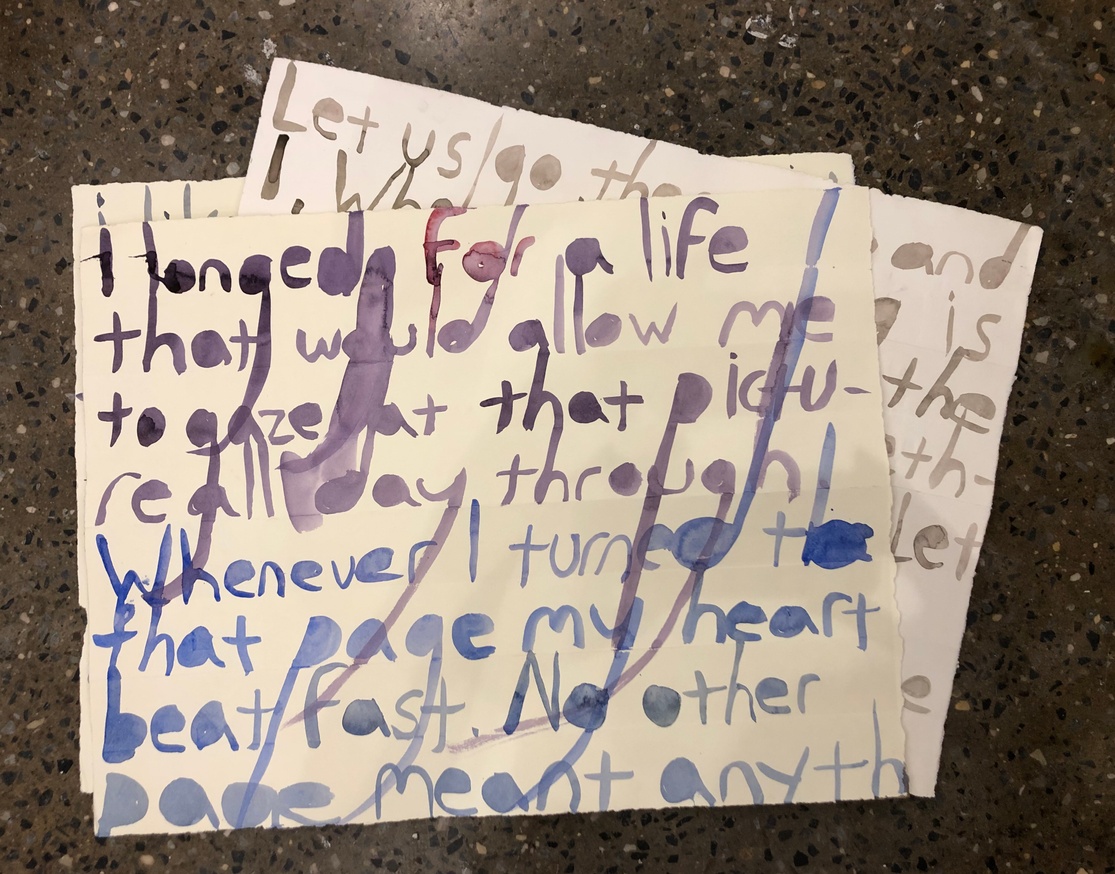 Let us go
I longed for a life
that would allow me
to gaze at that pictu-
re all day through
Whenever I turned to
that page my heart
beat fast. No other
page meant anyth
and
is
the
eth-
Let